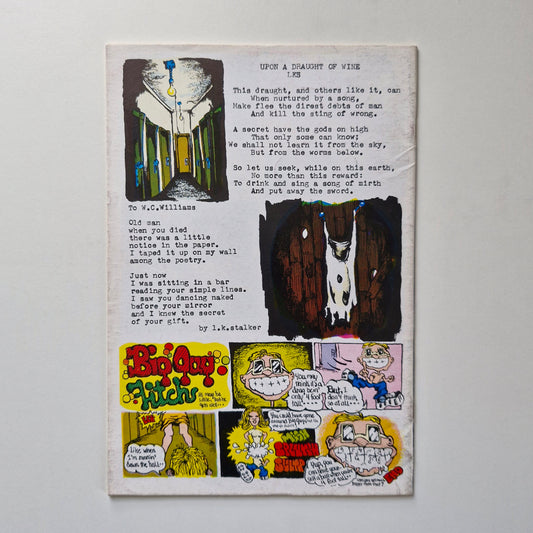 UPON A DRAUGHT OF WINE
LKS
This draught, and others like it, can
When nurtured by a song,
Make flee the direst debts of man
And kill the sting of wrong.
A secret have the gods on high
That only some can know;
We shall not learn it from the sky,
But from the worms below.
So let us seek, while on this earth,
No more than this reward:
To drink and sing a song of mirth
And put away the sword.
To W.C.Williams
Old man
when you died
there was a little
notice in the paper.
I taped it up on my wall
among the poetry.
Just now
I was sitting in a bar
reading your simple lines.
I saw you dancing naked
before your mirror
and I knew the secret
of your gift.
by l.k.stalker
Big Guy
You may
think it's a
drag bein'
only 4 foot
tall
But, I
don't think
so at all
Like when
I'm runnin'
down the hall
You could have gone
around